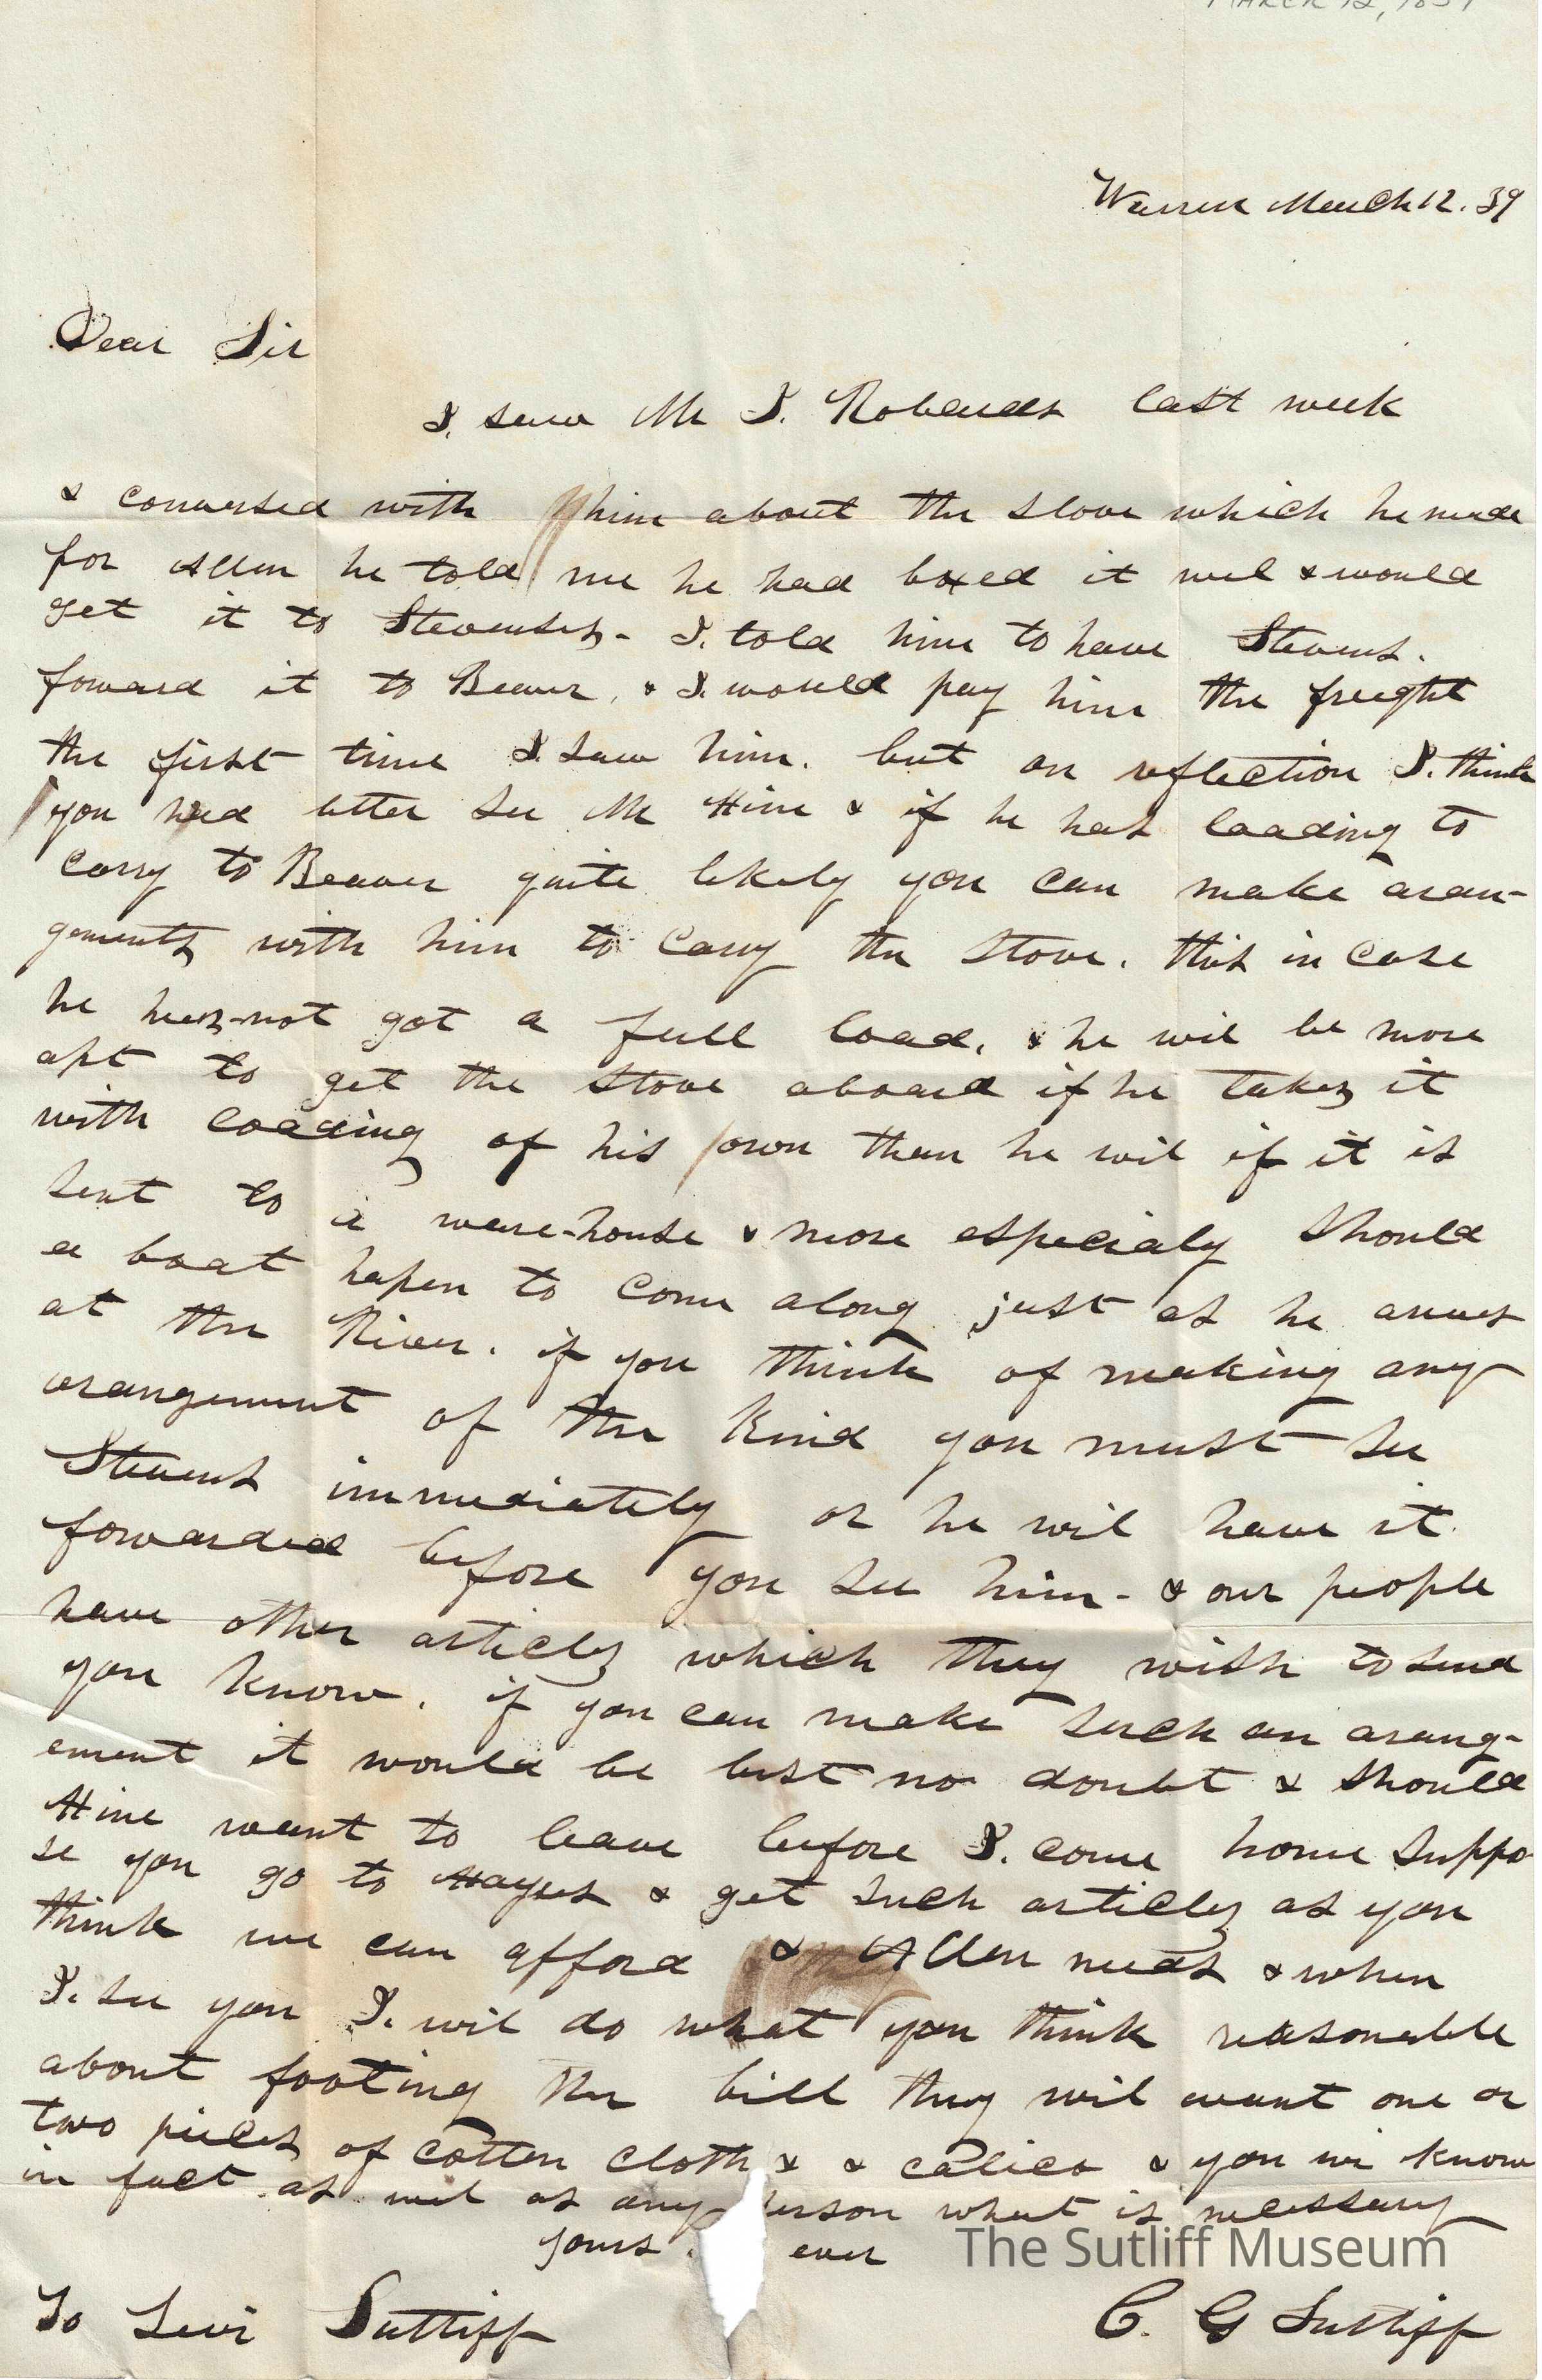 MARCH 12, 1839
Warren March 12. 39
Dear Sir
I. saw Mr I. Roberds last week
& conversed with him about the stove which he made
for Allen he told me he had boxed it wel & would
get it to Stevenses - I. told him to have Stevens.
foward it to Beaver, & I. would pay him the freeght
the first time I. saw him. but on reflection I. think
you had better see Mr Hine & if he has loading to
carry to Beaver quite likely you can make aran-
gements with him to carry the stove. this in case
he has not got a full load. & he wil be more
apt to get the stove aboard if he takes it
with loading of his own than he wil if it is
sent to a ware-house & more especialy should
a boat hapen to come along just as he arives
at the River. if you think of making any
arangement of the kind you must see
Stevens immediately or he wil have it
forwarded before you see him - & our people
have other articles which they wish to send
you know. if you can make such an arang-
ement it would be best no doubt & should
Hine want to leave before I. come home suppo
se you go to Hayses & get such articles as you
think we can afford & Allen needs & when
I. see you I. wil do what you think reasonable
about footing the bill they wil want one or
two pieces of cotten cloth & & calico & you wi know
in fact as wel as any person what is necessary
yours ever
The Sutliff Museum
To Levi Sutliff C. G Sutliff